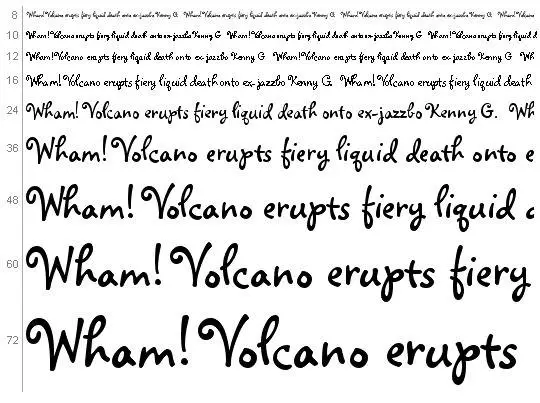 8 Wham! Volcano erupts fiery liquid death onto ex-jazzbo Kenny G. Wham! Volcano erupts fiery liquid death onto ex-jazzbo Kenny G. Wham! Volcano erupts
10 Wham! Volcano erupts fiery liquid death onto ex-jazzbo Kenny G. Wham! Volcano erupts fiery liquid death onto ex-jazzbo Kenny G. Wham! Volcano erupts fiery liquid d
12 Wham! Volcano erupts fiery liquid death onto ex-jazzbo Kenny G. Wham! Volcano erupts fiery liquid death onto ex-jazzbo Kenny G. Wh
16 Wham! Volcano erupts fiery liquid death onto ex-jazzbo Kenny G. Wham! Volcano erupts fiery liquid death
24 Wham! Volcano erupts fiery liquid death onto ex-jazzbo Kenny G. Wh
36 Wham! Volcano erupts fiery liquid death onto e
48 Wham! Volcano erupts fiery liquid
60 Wham! Volcano erupts fiery
72 Wham! Volcano erupts